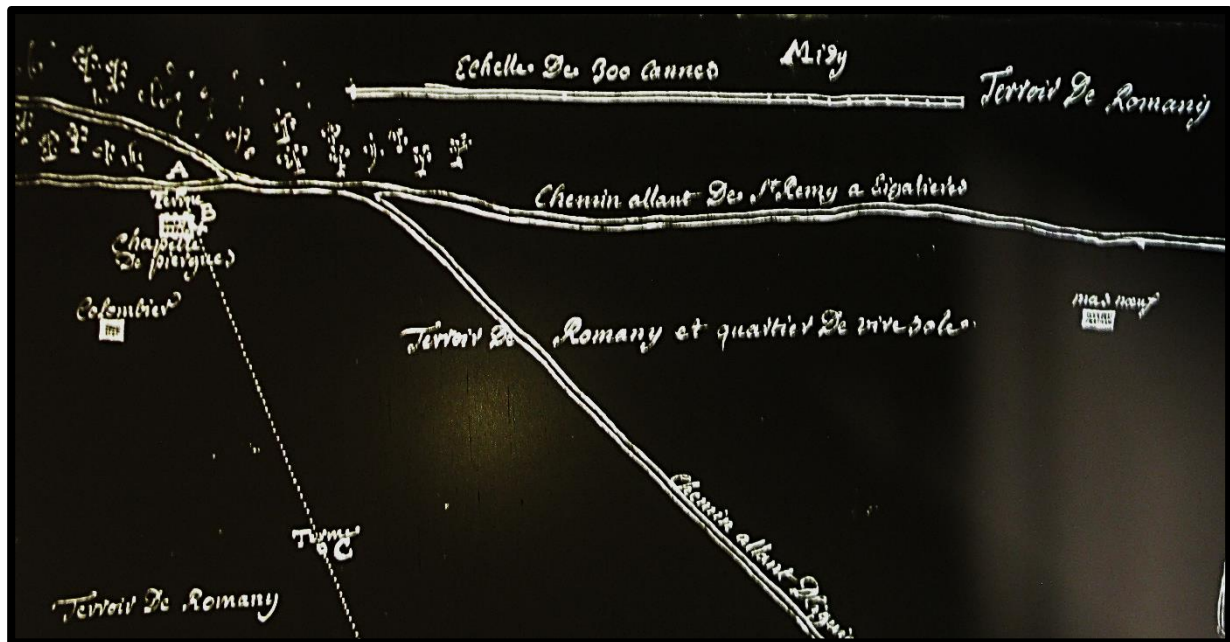 Midy
Echelles Des 300 Cannes
Terroir De Romany
A
Chemin allant Des St Remy a Eigalieres
Terme
B
Chapelle
De piergues
Colombier
mas neuf
Terroir De Romany et quartier De vire sole
Chemin allant
Terme
C
Terroir De Romany